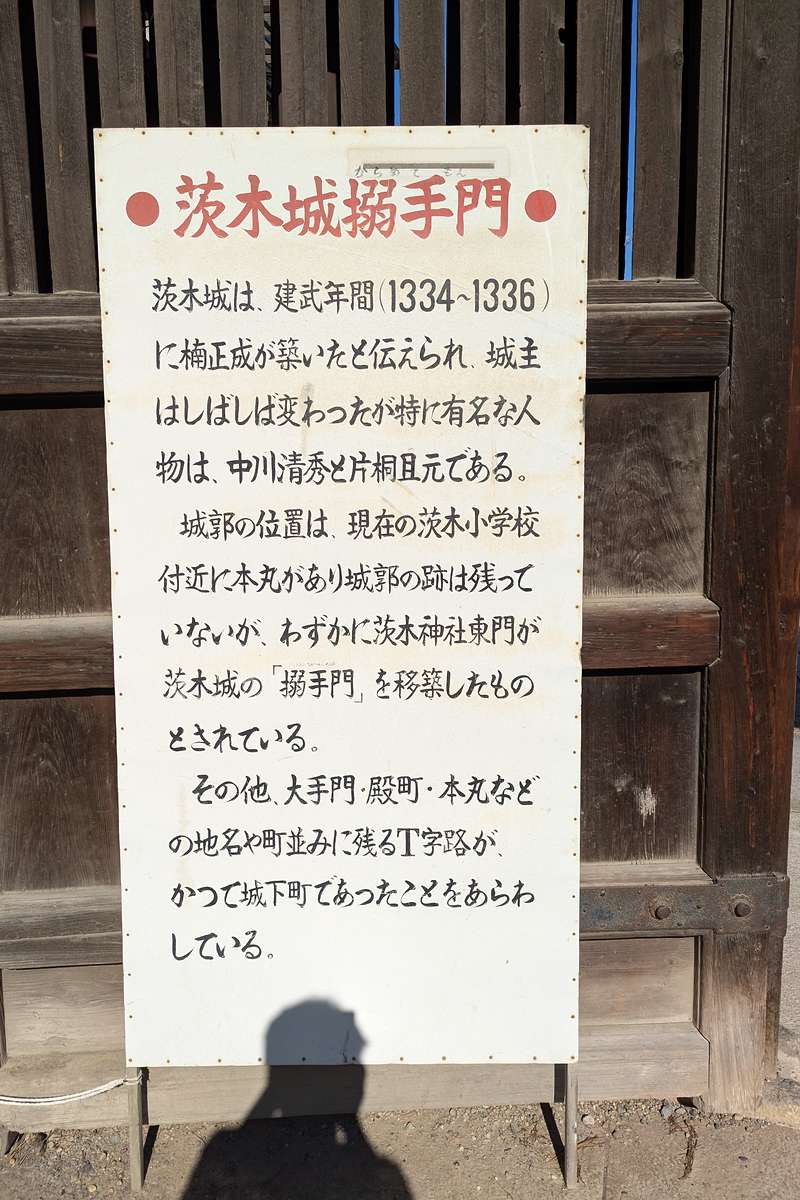 からめて もん
●茨木城搦手門●
茨木城は、建武年間(1334~1336)
に楠正成が築いたと伝えられ、城主
はしばしば変わったが特に有名な人
物は、中川清秀と片桐且元である。
城郭の位置は、現在の茨木小学校
付近に本丸があり城郭の跡は残って
いないが、わずかに茨木神社東門が
茨木城の「搦手門」を移築したもの
とされている。
その他、大手門・殿町・本丸など
の地名や町並みに残るT字路が、
かつて城下町であったことをあらわ
している。